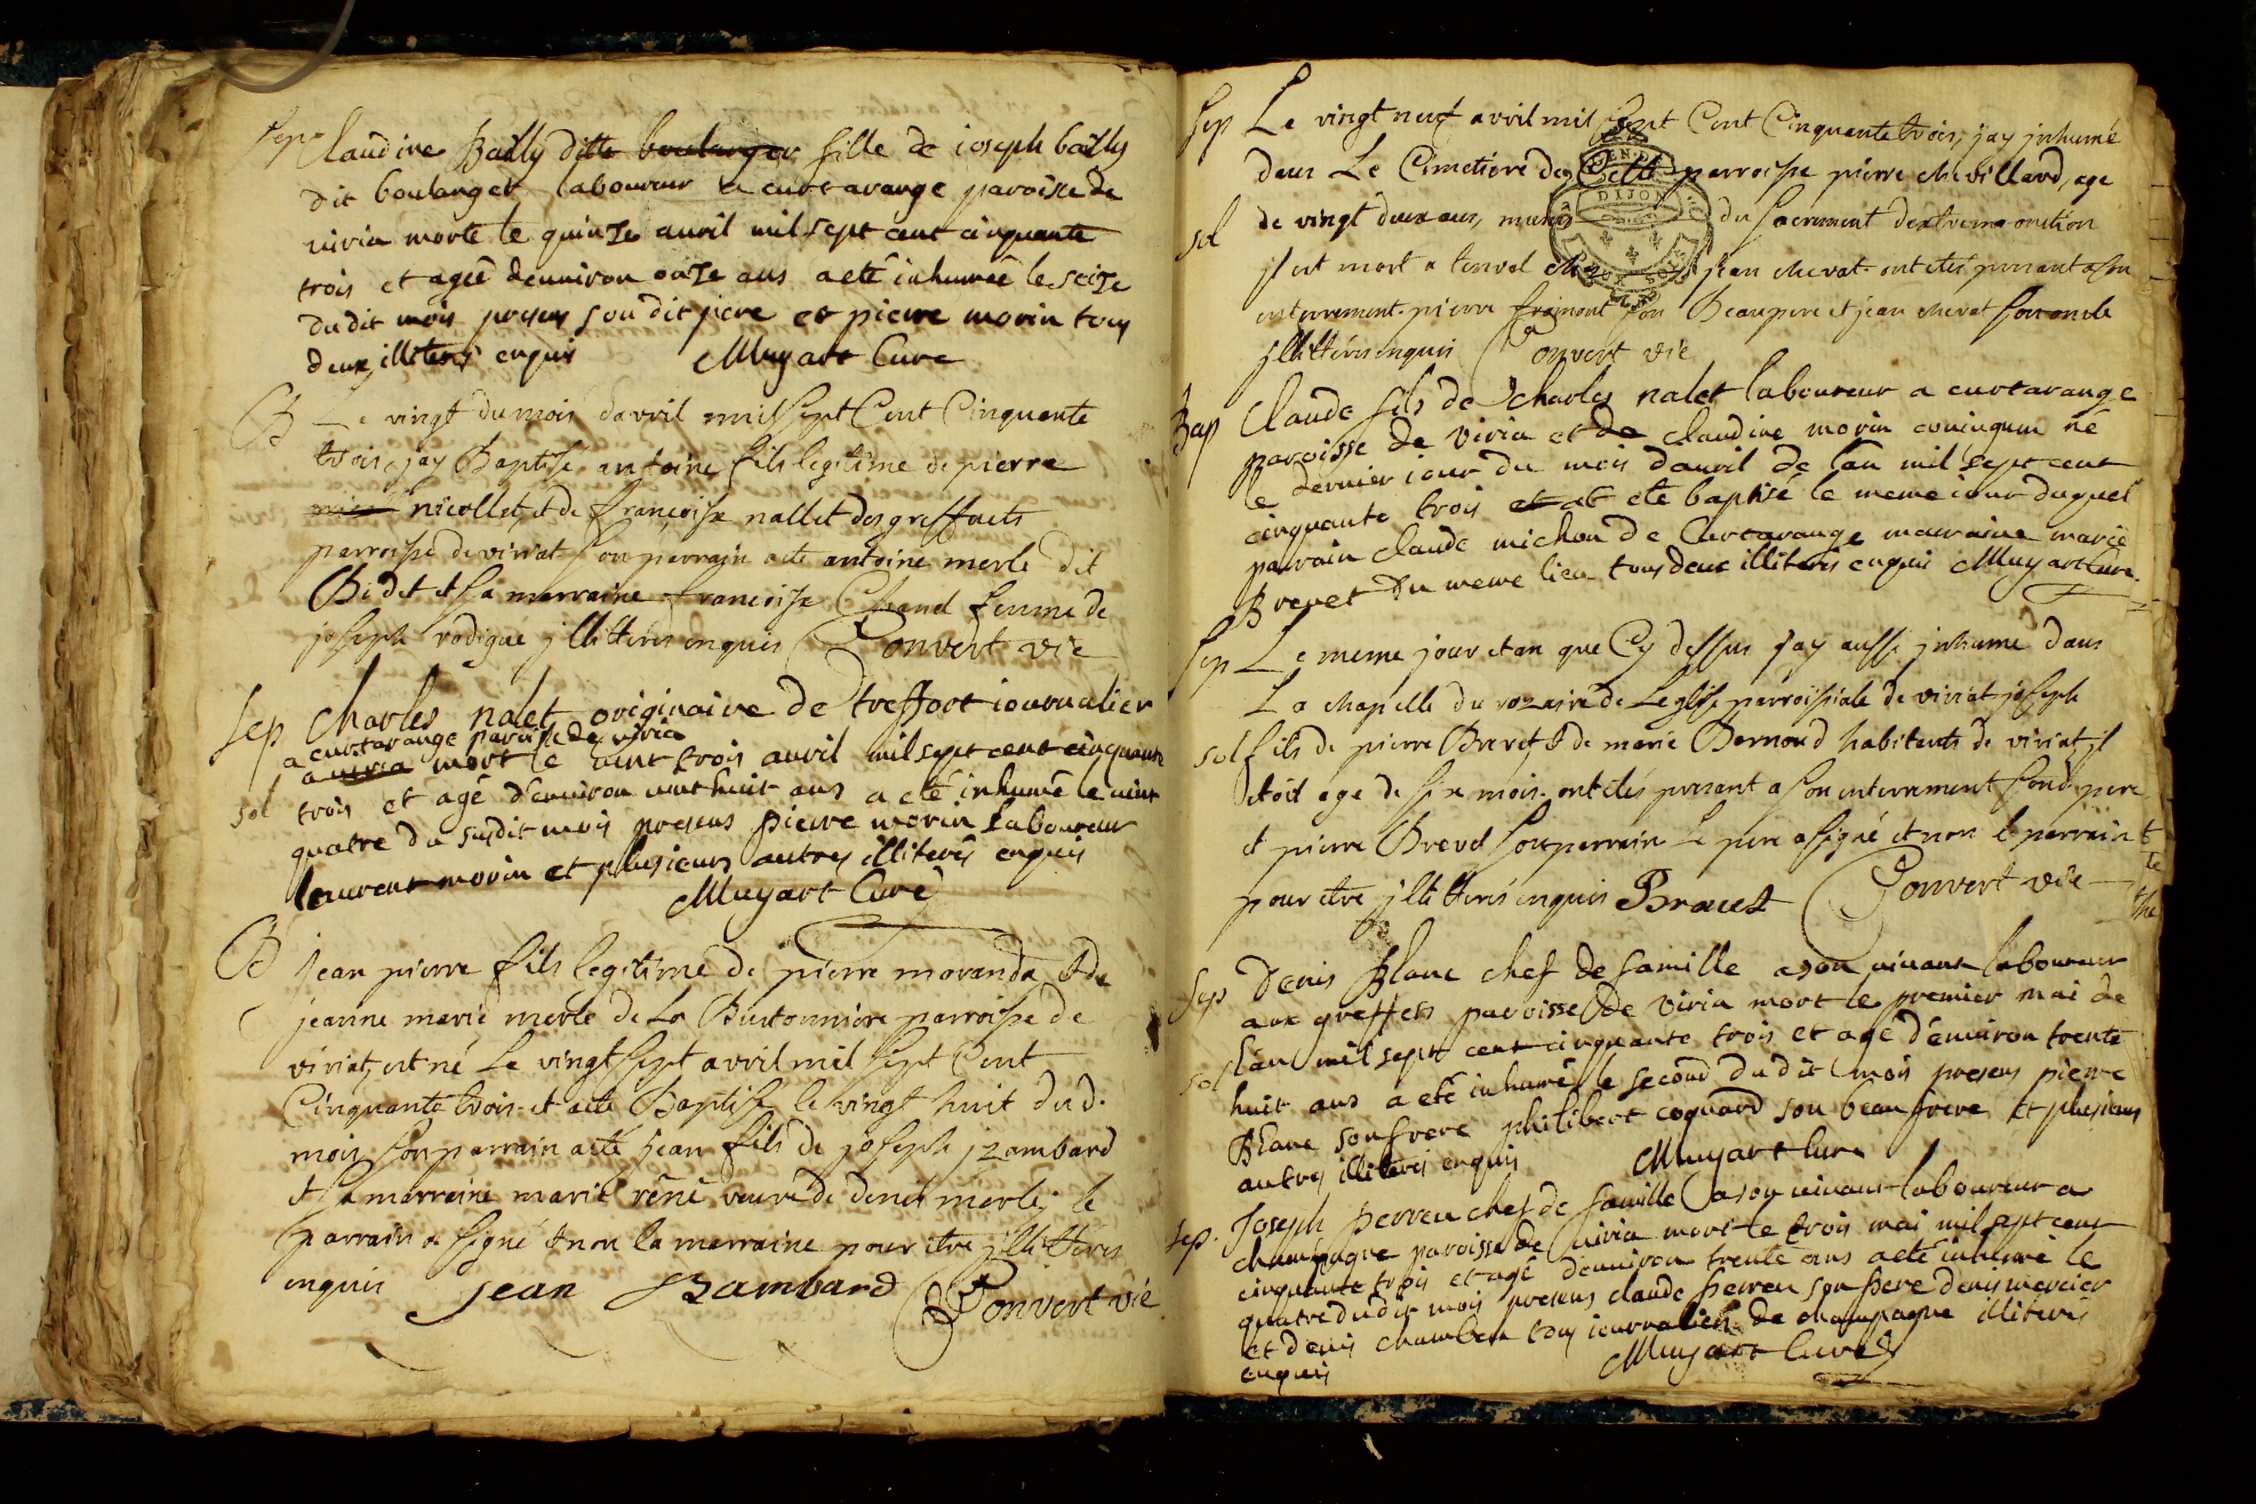 Sep Claudine Bailly ditte boulanger fille de ioseph bailly
dit boulanger laboureur a curtarange paroisse de
viria morte le quinze auril mil sept cent cinquante
trois et agée denuiron onze ans a eté inhumeé le seize
du dit mois presens son dit pere et pierre morin tous
deux illiterés enquis Muyart Curé
B Le vingt du mois davril mil sept Cent Cinquante
trois, jay Baptisé antoine fils legitime de pierre
nicollet, et de francoise nallet des greffets
parroisse de viriat son parrain a eté antoine merle dit
Bidet et sa marraine francoise Chanel femme de
joseph rodigue jllitterés enquis Convert vic
Sep Charles nalet originaire de treffort iournalier
a curtarange paroisse de viria
a viria mort le vint trois auril mil sept cent cinquante
sol trois et agé d'enuiron vint huit ans a eté inhumé le vint
quatre du susdit mois presens pierre morin laboureur
laurent morin et plusieurs autres illiterés enquis
Muyart Curé
B jean pierre fils legitime de pierre morandà et de
jeanne marie merle de La Burtonniere parroisse de
viriat, est né Le vingt sept avril mil sept Cent
Cinquante trois et a eté Baptisé le vingt huit dud.
mois, son parrain a eté jean fils de joseph jzambard
et sa marraine marie réné veuve de denis merle; le
parrain a signé et non la marraine pour etre jllitterés
enquis jean Bambard Convert vic
Sep Le vingt neuf avril mil sept Cent Cinquante trois, jay jnhumé
dans Le Cimetiere de Cette parroisse pierre chevillard, age
DIJON
de vingt deux ans, munis du sacrement dextreme onction
sol
jl est mort a tenvol chez jean chevat ont etés present a son
enterrement pierre fromont son Beaupere et jean chevat son oncle
jllitterés enquis Convert vic
Bap Claude fils de charles nalet laboureur a curtarange
paroisse de viria et de claudine morin coniugum né
le dernier iour du mois dauril de lan mil sept cent
cinquante trois et at eté baptisé le meme iour duquel
parrain claude michon de Curtarange marraine marie
Brevet du meme lieu tous deux illiterés enquis Muyart Curé
Sep Le meme jour et an que Cy dessus jay aussi jnhumé dans
La chapelle du rozaire de Leglise parroissiale de viriat joseph
sol fils de pierre Brevet, et de marie Bernoud habitents de viriat, jl
etoit age de six mois ont etés present a son enterrement sond. pere
et pierre Brevet son parrain Le pere a signé et non le parrain
pour etre jllitterés enquis Brauet Convert vic
Sep Denis Blanc chef de famille a son uiuant laboureur
aux greffets paroisse de viria mort le premier mai de
sol lan mil sept cent cinquante trois et agé d'enuiron trente
huit ans a eté inhumé le second du dit mois presens pierre
Blanc son frere philibert coquard son beau frere et plusieurs
autres illiterés enquis Muyart Curé
Sep. Joseph perren chef de famille a son uiuant laboureur a
champagne paroisse de viria mort le trois mai mil sept cent
cinquante trois et agé denuiron trente ans a eté inhumé le
quatre du dit mois presens claude perren son pere denis mercier
et denis chambou tous iournaliers de champagne illiterés
enquis Muyart Curé